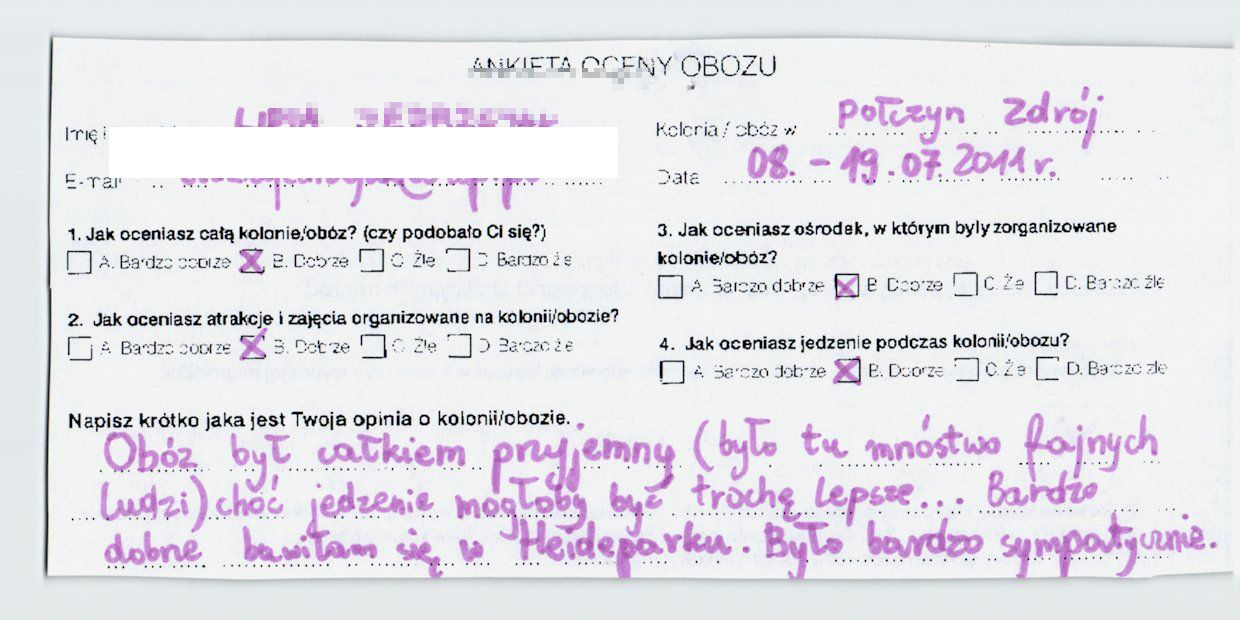 ANKIETA OCENY OBOZU
Imię i
Kolonia / obóz w Połczyn Zdrój
E-mail
Data 08. - 19.07.2011 r.
1. Jak oceniasz całą kolonie/obóz? (czy podobało Ci się?)
A. Bardzo dobrze B. Dobrze C. Źle D. Bardzo źle
2. Jak oceniasz atrakcje i zajęcia organizowane na kolonii/obozie?
A. Bardzo dobrze B. Dobrze C. Źle D. Bardzo źle
3. Jak oceniasz ośrodek, w którym były zorganizowane
kolonie/obóz?
A. Bardzo dobrze B. Dobrze C. Źle D. Bardzo źle
4. Jak oceniasz jedzenie podczas kolonii/obozu?
A. Bardzo dobrze B. Dobrze C. Źle D. Bardzo źle
Napisz krótko jaka jest Twoja opinia o kolonii/obozie.
Obóz był całkiem przyjemny (było tu mnóstwo fajnych
ludzi) choć jedzenie mogłoby być trochę lepsze... Bardzo
dobrze bawiłam się w Heideparku. Było bardzo sympatycznie.